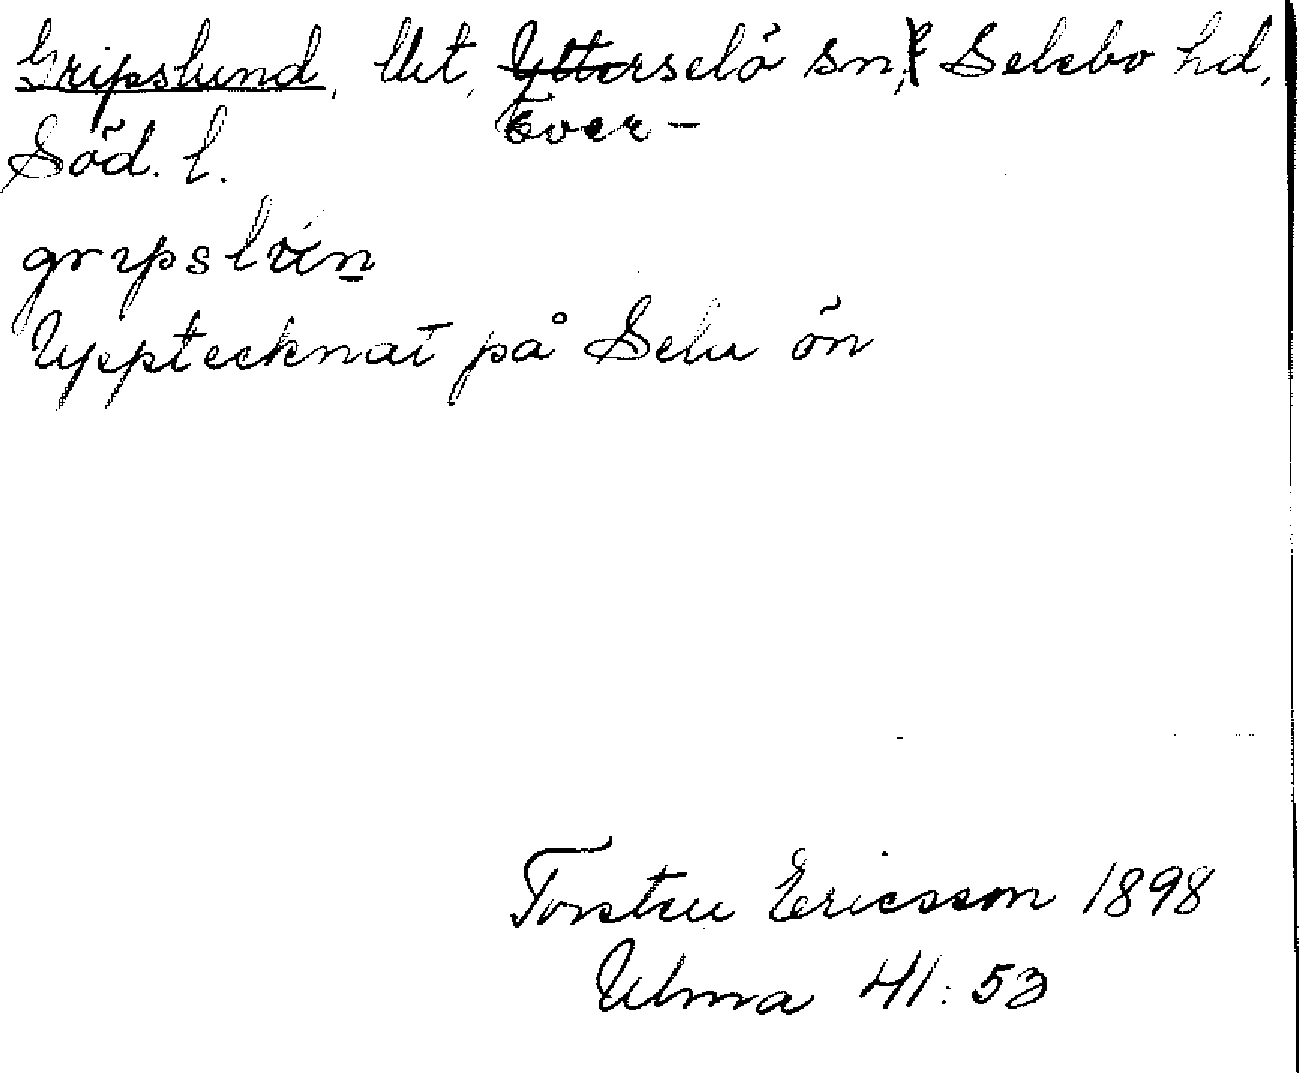 Gripslund, Ut, Ytterselö sn, Selebo hd,
Över-
Söd. l.
gripslun
Upptecknat på Selaön
Torsten Ericsson 1898
Ulma 41:53